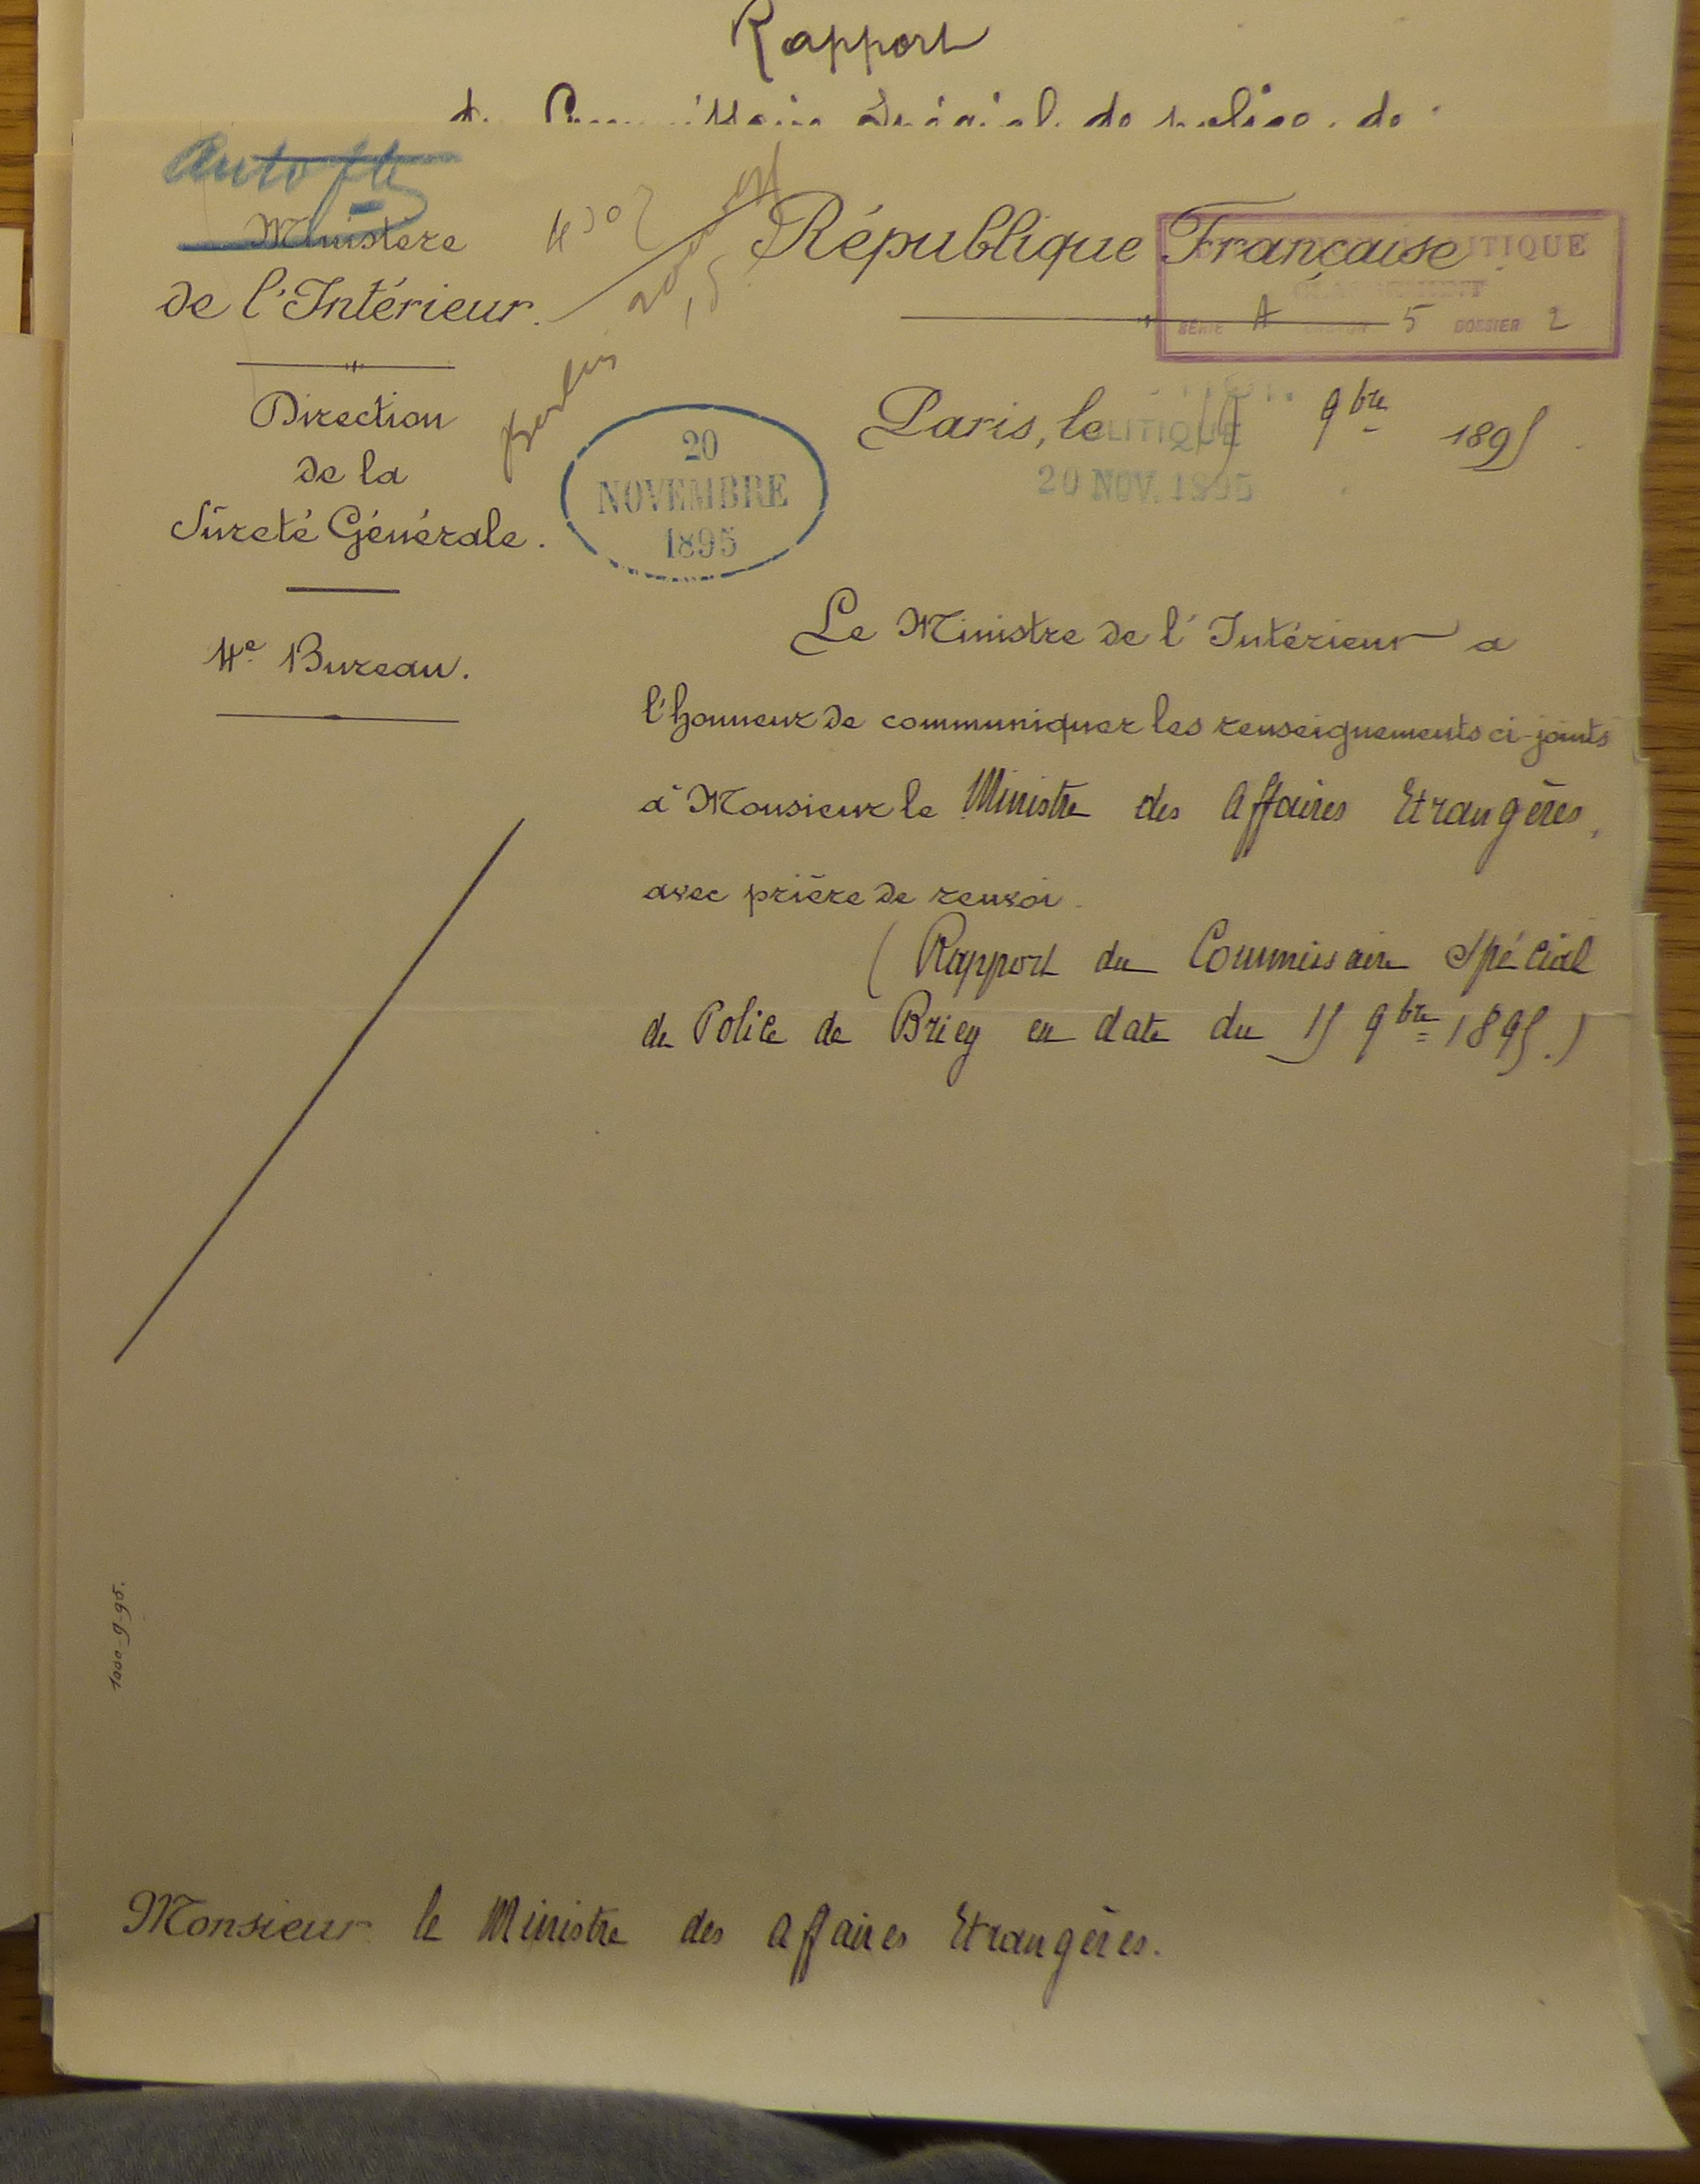 Rapport
Ministère
de l'Intérieur.
Direction
de la
Sûreté Générale.
4e Bureau.
République Française
TIQUE
SÉRIE A 5 DOSSIER 2
Berlin
20
NOVEMBRE
1895
Paris, le 19 9bre 1895
LITIQUE
20 NOV. 1895
Le Ministre de l'Intérieur a
l'honneur de communiquer les renseignements ci-joints
à Monsieur le Ministre des Affaires Etrangères,
avec prière de renvoi.
(Rapport du Commissaire Spécial
de Police de Briey en date du 15 9bre 1895.)
1000-9-95.
Monsieur le Ministre des Affaires Etrangères.